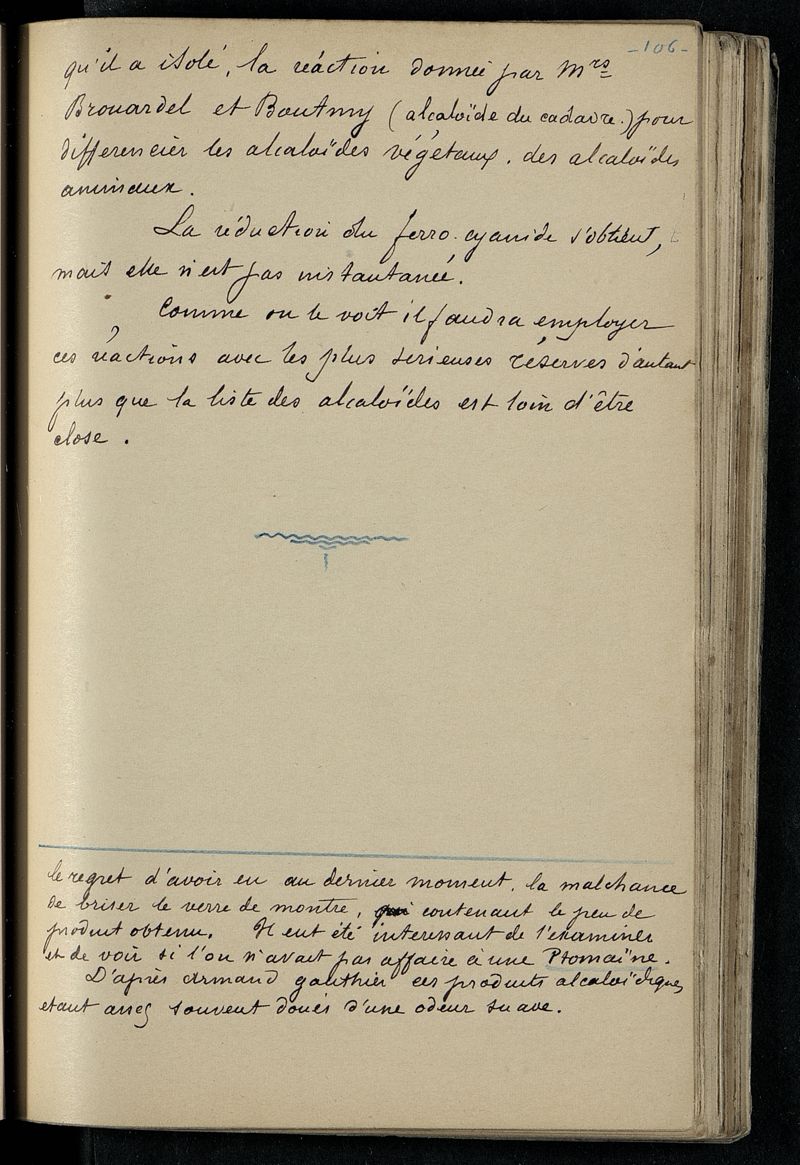 -106-
qu'il a isolé, la réaction donnée par Mrs
Brouardel et Boutmy (alcaloïde du cadavre.) pour
differencier les alcaloïdes végétaux. des alcaloïdes
animaux.
La réduction du ferro-cyanide s'obtient,
mais elle n'est pas instantanée.
Comme on le voit il faudra employer
ces réactions avec les plus serieuses réserves d'autant
plus que la liste des alcaloïdes est loin d'être
close.
le regret d'avoir eu au dernier moment, la malchance
de briser le verre de montre, qui contenant le peu de
produit obtenu. Il eut été interessant de l'examiner
et de voir si l'on n'avait pas affaire à une Ptomaïne.
D'après Armand gauthier ces produits alcaloïdiques
etant assez souvent doués d'une odeur suave.